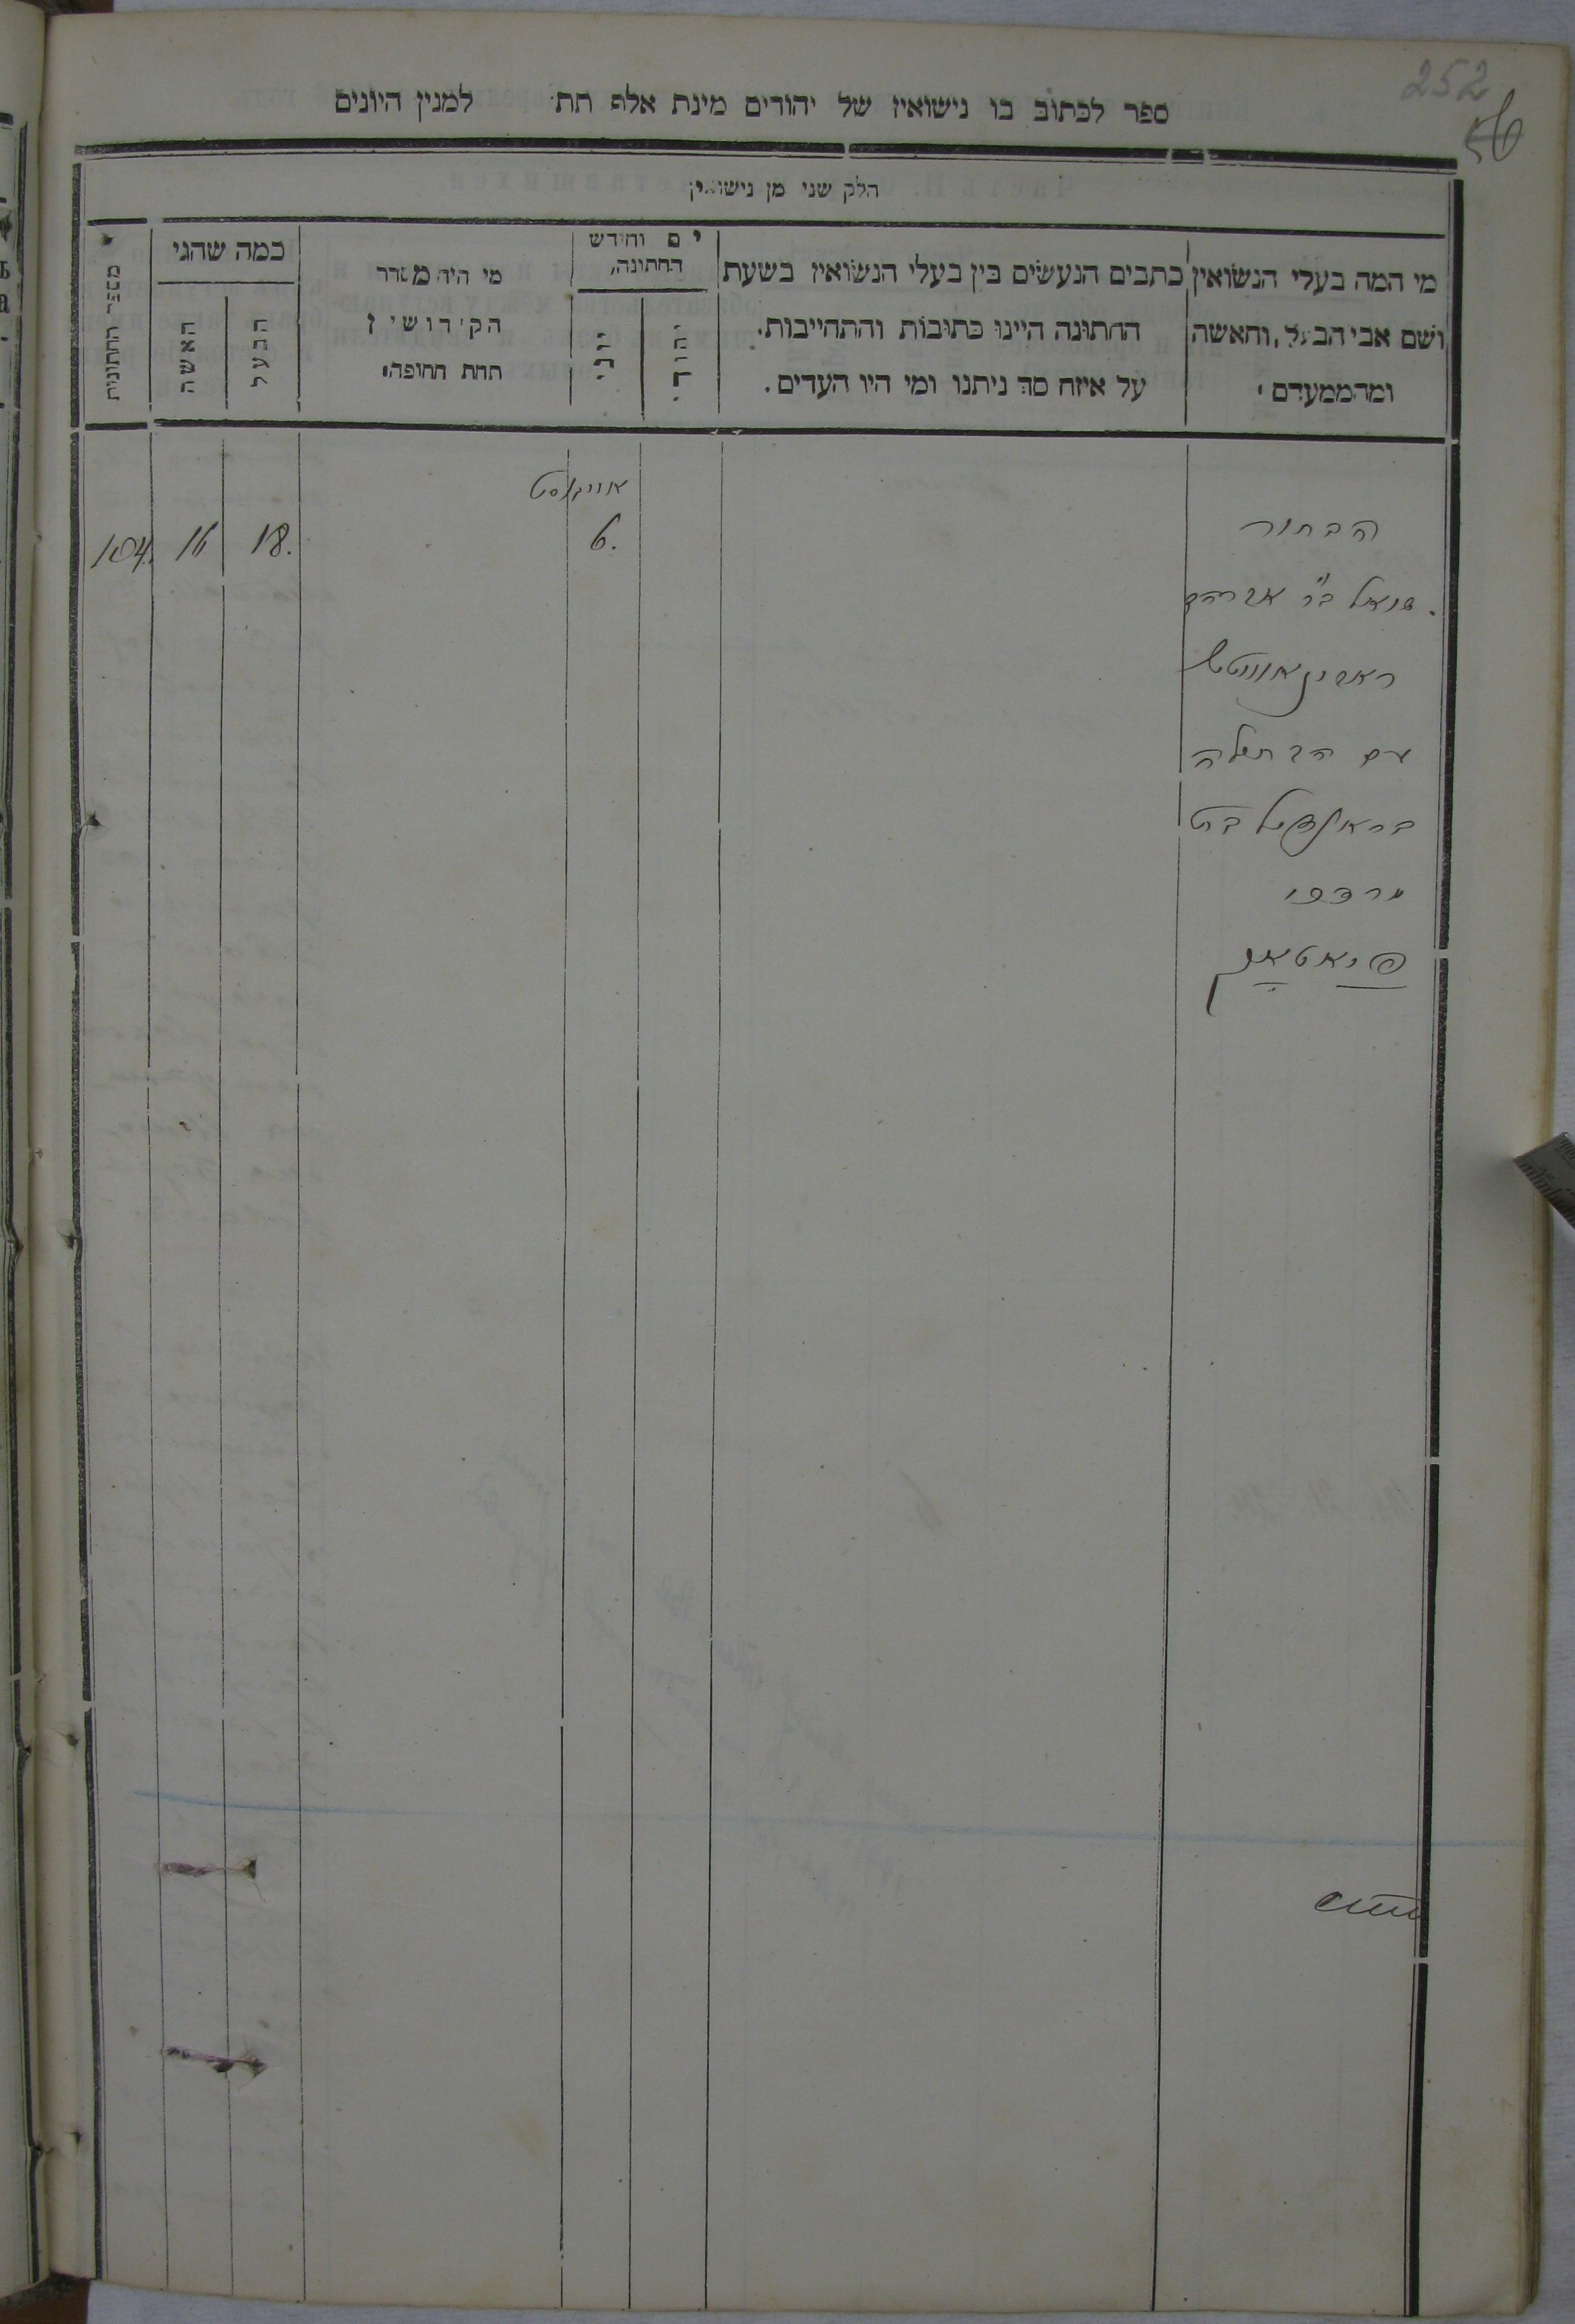 252
ספר לכתוב בו נישואין של יהודים מינת אלף תת למנין היונים
חלק שני מן נישואין
מי המה בעלי הנשואין
ושם אבי הבעל, והאשה
ומהממעדם
כתבים הנעשים בין בעלי הנשואין בשעת
החתונה היינו כתובות והתהייבות.
על איזה סך ניתנו ומי היו העדים.
יום וחודש
החתונה,
יהודי
יוני
מי היה מסדר
הקידושין
תחת החופה
כמה שהגי
הבעל
האשה
מספר החתונות
אויגוסט
104. 16 18. 6.
הבחור
שמואל ב"ר אברהם
ראבינאוויטש
עם הבתולה
בראינדיל בת
מרדכי